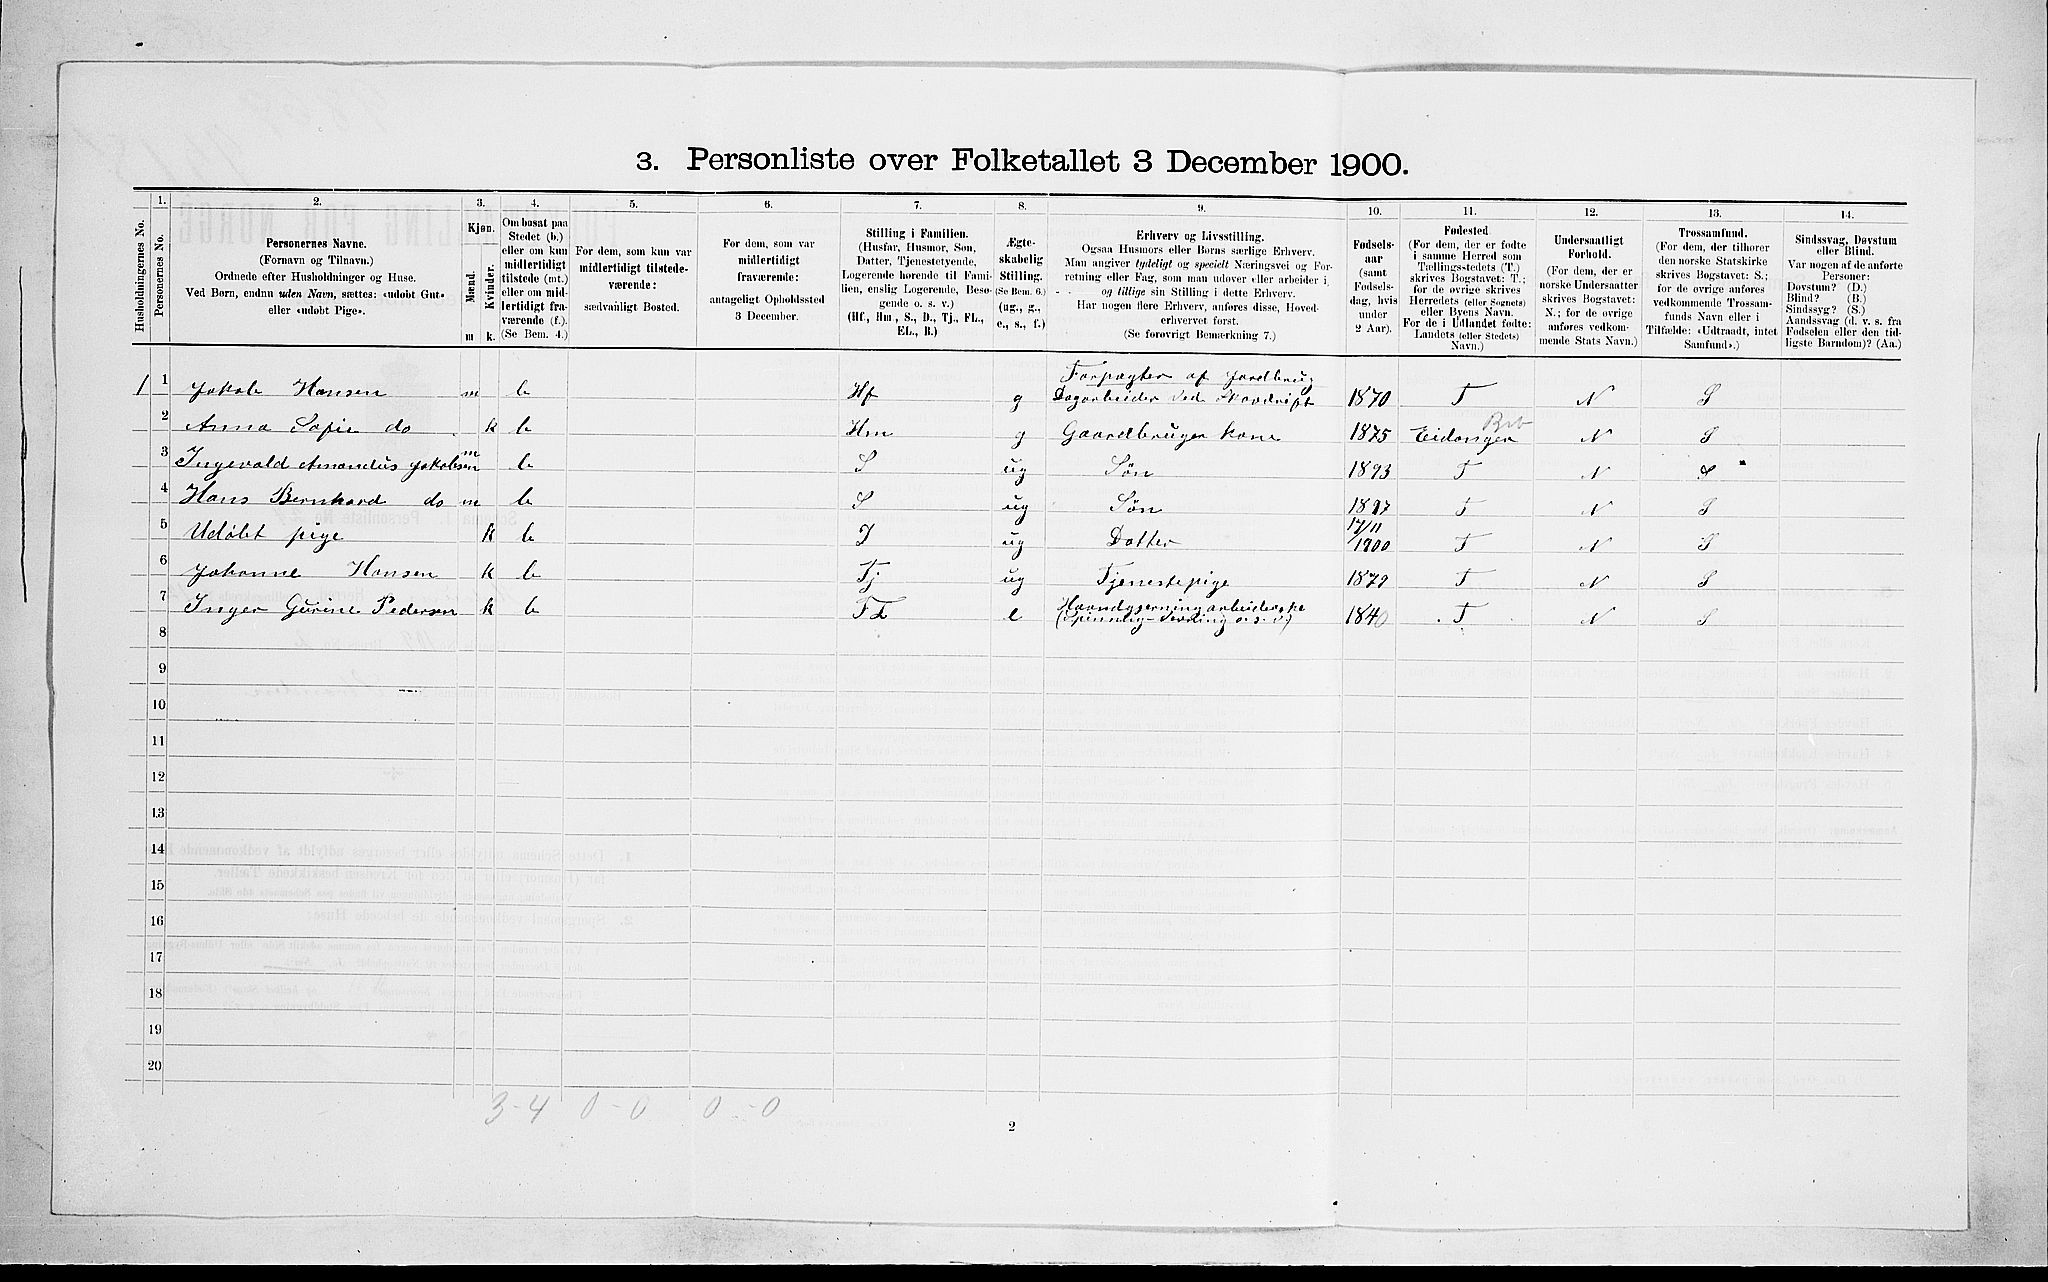 3. Personliste over Folketallet 3 December 1900.
Husholdningernes No.
1.
Personernes No.
2.
Personernes Navne.
(Fornavn og Tilnavn.)
Ordnede efter Husholdninger og Huse.
Ved Børn, endnu uden Navn, sættes: «udøbt Gut»
eller «udøbt Pige».
3.
Kjøn.
Mænd.
Kvinder.
m k.
4.
Om bosat paa
Stedet (b.)
eller om kun
midlertidigt
tilstede (mt.)
eller om mid-
lertidigt fra-
værende (f.).
(Se Bem. 4.)
5.
For dem, som kun var
midlertidigt tilstede-
værende:
sædvanligt Bosted.
6.
For dem, som var
midlertidigt
fraværende:
antageligt Opholdssted
3 December.
7.
Stilling i Familien.
(Husfar, Husmor, Søn,
Datter, Tjenestetyende,
Logerende hørende til Fami-
lien, enslig Logerende, Besø-
gende o. s. v.)
(Hf., Hm., S., D., Tj., FL.,
EL., B.)
8.
Ægte-
skabelig
Stilling.
(Se Bem. 6.)
(ug., g.,
e., s., f.)
9.
Erhverv og Livsstilling.
Ogsaa Husmors eller Børns særlige Erhverv.
Man angiver tydeligt og specielt Næringsvei og For-
retning eller Fag, som man udøver eller arbeider i,
og tillige sin Stilling i dette Erhverv.
Har nogen flere Erhverv, anføres disse, Hoved-
erhvervet først.
(Se forøvrigt Bemærkning 7.)
10.
Fødsels-
aar
(samt
Fødsels-
dag, hvis
under
2 Aar).
11.
Fødested.
(For dem, der er fødte
i samme Herred som
Tællingsstedets (T.)
skrives Bogstavet: T.;
for de øvrige skrives
Herredets (eller Sognets)
eller Byens Navn.
For de i Udlandet fødte:
Landets (eller Stedets)
Navn.)
12.
Undersaatligt
Forhold.
(For dem, der er
norske Undersaatter
skrives Bogstavet:
N.; for de øvrige
anføres vedkom-
mende Stats Navn.)
13.
Trossamfund.
(For dem, der tilhører
den norske Statskirke
skrives Bogstavet: S.;
for de øvrige anføres
vedkommende Trossam-
funds Navn eller i
Tilfælde: «Udtraadt, intet
Samfund».)
14.
Sindssvag, Døvstum
eller Blind.
Var nogen af de anførte
Personer:
Døvstum? (D.)
Blind? (B.)
Sindssyg? (S.)
Aandssvag (d. v. s. fra
Fødselen eller den tid-
ligste Barndom)? (Aa.)
1 1 Jakob Hansen m b Hf g Forpagter af Jordbrug Dagarbeider ved Skovdrift 1870 T N S
2 Anna Sofie do k b Hm g Gaardbruger kone 1875 Eidanger Brb N S
3 Ingevald Amandus Jakobsen m b S ug Søn 1893 T N S
4 Hans Bernhard do m b S ug Søn 1897 T N S
5 Udøbt pige k b D ug Datter 17/11 1900 T N S
6 Johanne Hansen k b Tj ug Tjenestepige 1879 T N S
7 Inger Gurine Pedersen k b FL e Haandgjerning arbeiderske (Spinning - Vævning o. s. v) 1840 T N S
8
9
10
11
12
13
14
15
16
17
18
19
20
3-4 0-0 0-0
2